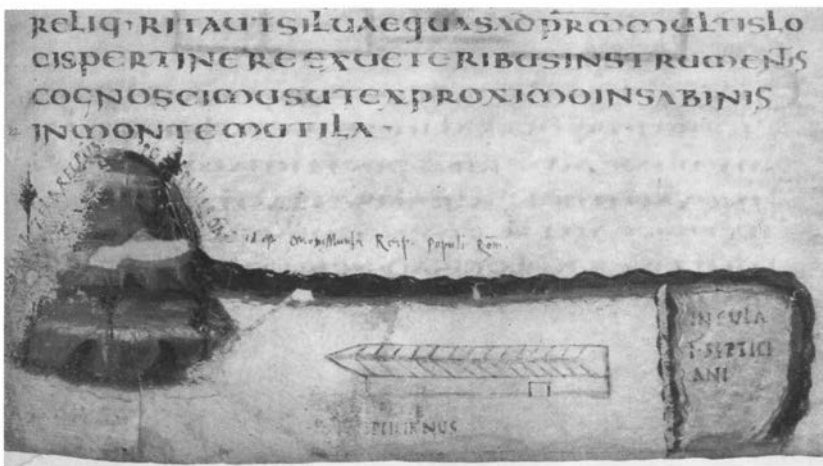 RELIQ· RITAUTSILUAEQUASADPRMMULTISLO
CISPERTINEREEXUETERIBUSINSTRUMENTIS
COGNOSCIMUSUTEXPROXIMOINSABINIS
INMONTEMUTILA·
populi Rom.
INSULA
T·SEPTICI
ANI